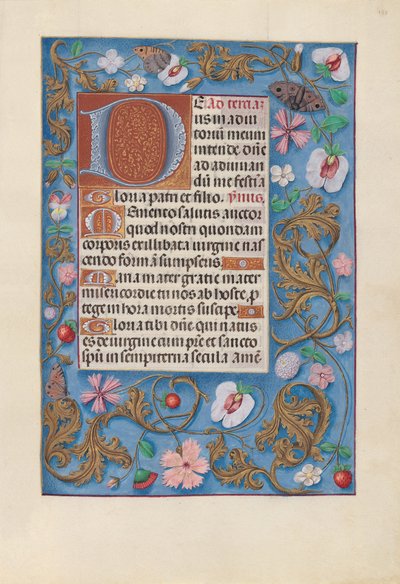 Ad tercia&
Deus in adiu
toriu meum
intende. Dñe
ad adiuuan
dũ me festia
Gloria patri et filio. ymus
Memento salutis auctor
quod nostri quondam
corporis ex illibata uirgine nas
cendo formã sumpseris
Maria mater gratie mater
misericordie tu nos ab hoste, p
tege in hora mortis suscipe
Gloria tibi dñe qui natus
es de uirgine cum pre et sancto
spũ in sempiterna secula amẽ